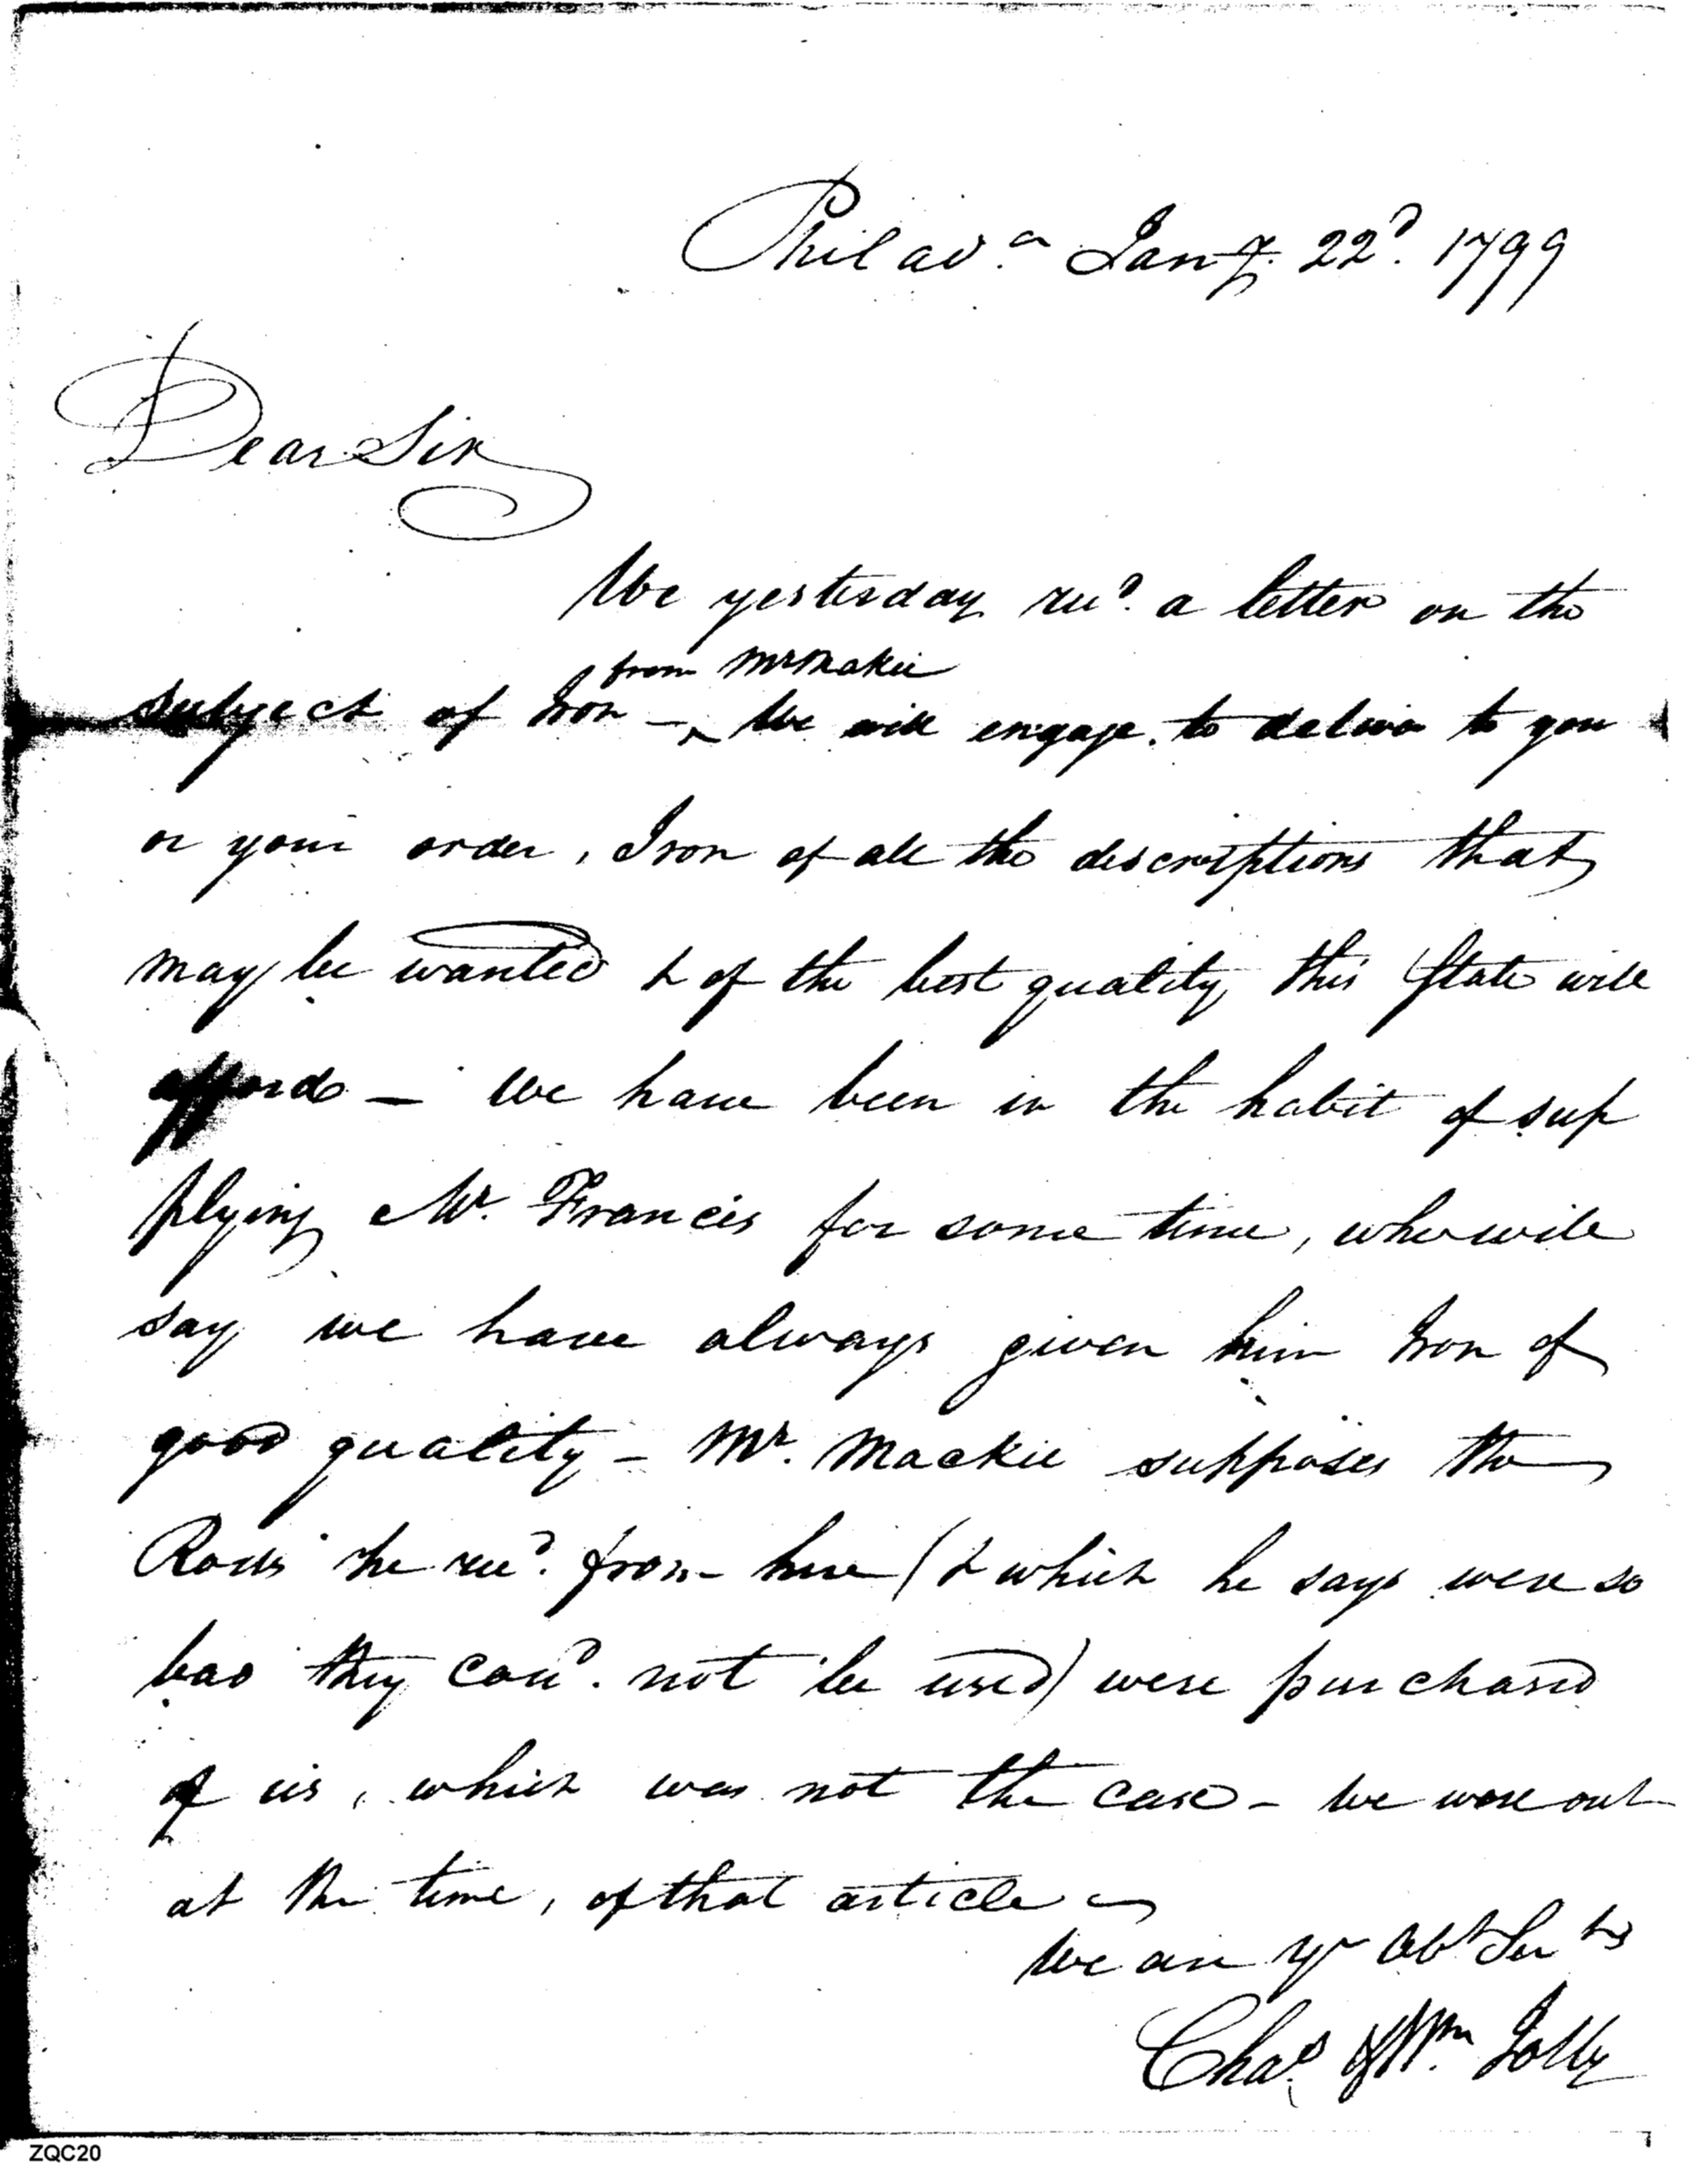 Philad.a Jany. 22d. 1799
Dear Sir
We yesterday recd. a letter on the
from Mr Makie
subject of Iron - ^ We will engage to deliver to you
or your order, Iron of all the descriptions that
may be wanted & of the best quality this State will
afford - We have been in the habit of sup
plying Mr. Francis for some time, who will
say we have always given him Iron of
good quality - Mr. Mackie supposes the
Rods he recd. from here (& which he says were so
bad they coud. not be used) were purchased
of us, which was not the case - we were out
at the time, of that article -
We are yr Obt Serts
Chas. & Wm. Jolly
ZQC20